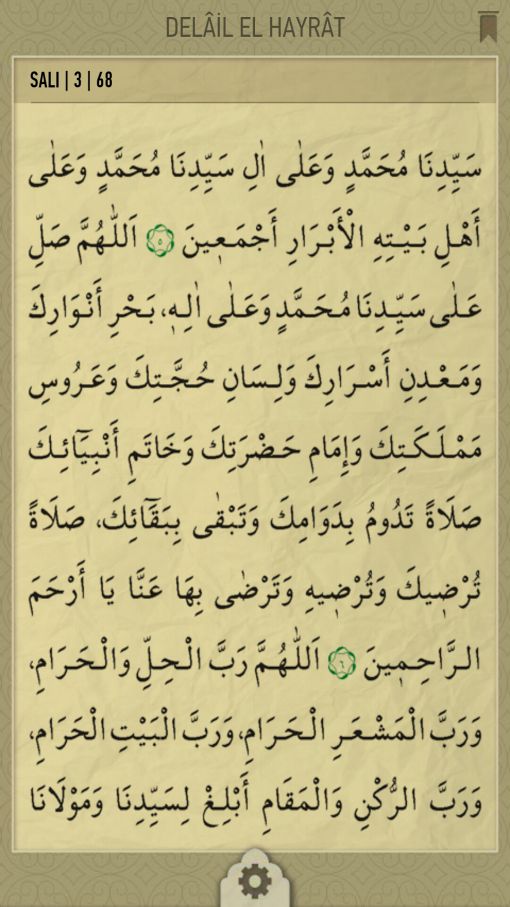 DELÂİL EL HAYRÂT
SALI | 3 | 68
سَيِّدِنَا مُحَمَّدٍ وَعَلٰى اٰلِ سَيِّدِنَا مُحَمَّدٍ وَعَلٰى
أَهْلِ بَيْتِهِ الْأَبْرَارِ أَجْمَعِينَ ٥ اَللّٰهُمَّ صَلِّ
عَلٰى سَيِّدِنَا مُحَمَّدٍ وَعَلٰى اٰلِهٖ، بَحْرِ أَنْوَارِكَ
وَمَعْدِنِ أَسْرَارِكَ وَلِسَانِ حُجَّتِكَ وَعَرُوسِ
مَمْلَكَتِكَ وَإِمَامِ حَضْرَتِكَ وَخَاتَمِ أَنْبِيَٓائِكَ
صَلَاةً تَدُومُ بِدَوَامِكَ وَتَبْقٰى بِبَقَٓائِكَ، صَلَاةً
تُرْضِيكَ وَتُرْضِيهِ وَتَرْضٰى بِهَا عَنَّا يَا أَرْحَمَ
الرَّاحِمِينَ ٦ اَللّٰهُمَّ رَبَّ الْحِلِّ وَالْحَرَامِ،
وَرَبَّ الْمَشْعَرِ الْحَرَامِ، وَرَبَّ الْبَيْتِ الْحَرَامِ،
وَرَبَّ الرُّكْنِ وَالْمَقَامِ أَبْلِغْ لِسَيِّدِنَا وَمَوْلَانَا